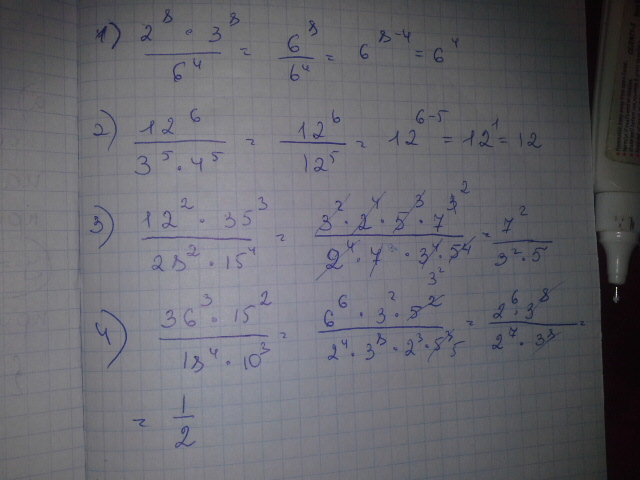 1) 2^8 · 3^8 / 6^4 = 6^8 / 6^4 = 6^(8-4) = 6^4
2) 12^6 / 3^5 · 4^5 = 12^6 / 12^5 = 12^(6-5) = 12^1 = 12
3) 12^2 · 35^3 / 28^2 · 15^4 = 3^2 · 2^4 · 5^3 · 7^3 2 / 2^4 · 7^2 · 3^4 · 5^4 3^2 = 7^2 / 3^2 · 5
4) 36^3 · 15^2 / 18^4 · 10^3 = 6^6 · 3^2 · 5^2 / 2^4 · 3^8 · 2^3 · 5^3 5 = 2^6 · 3^8 / 2^7 · 3^8 =
= 1 / 2